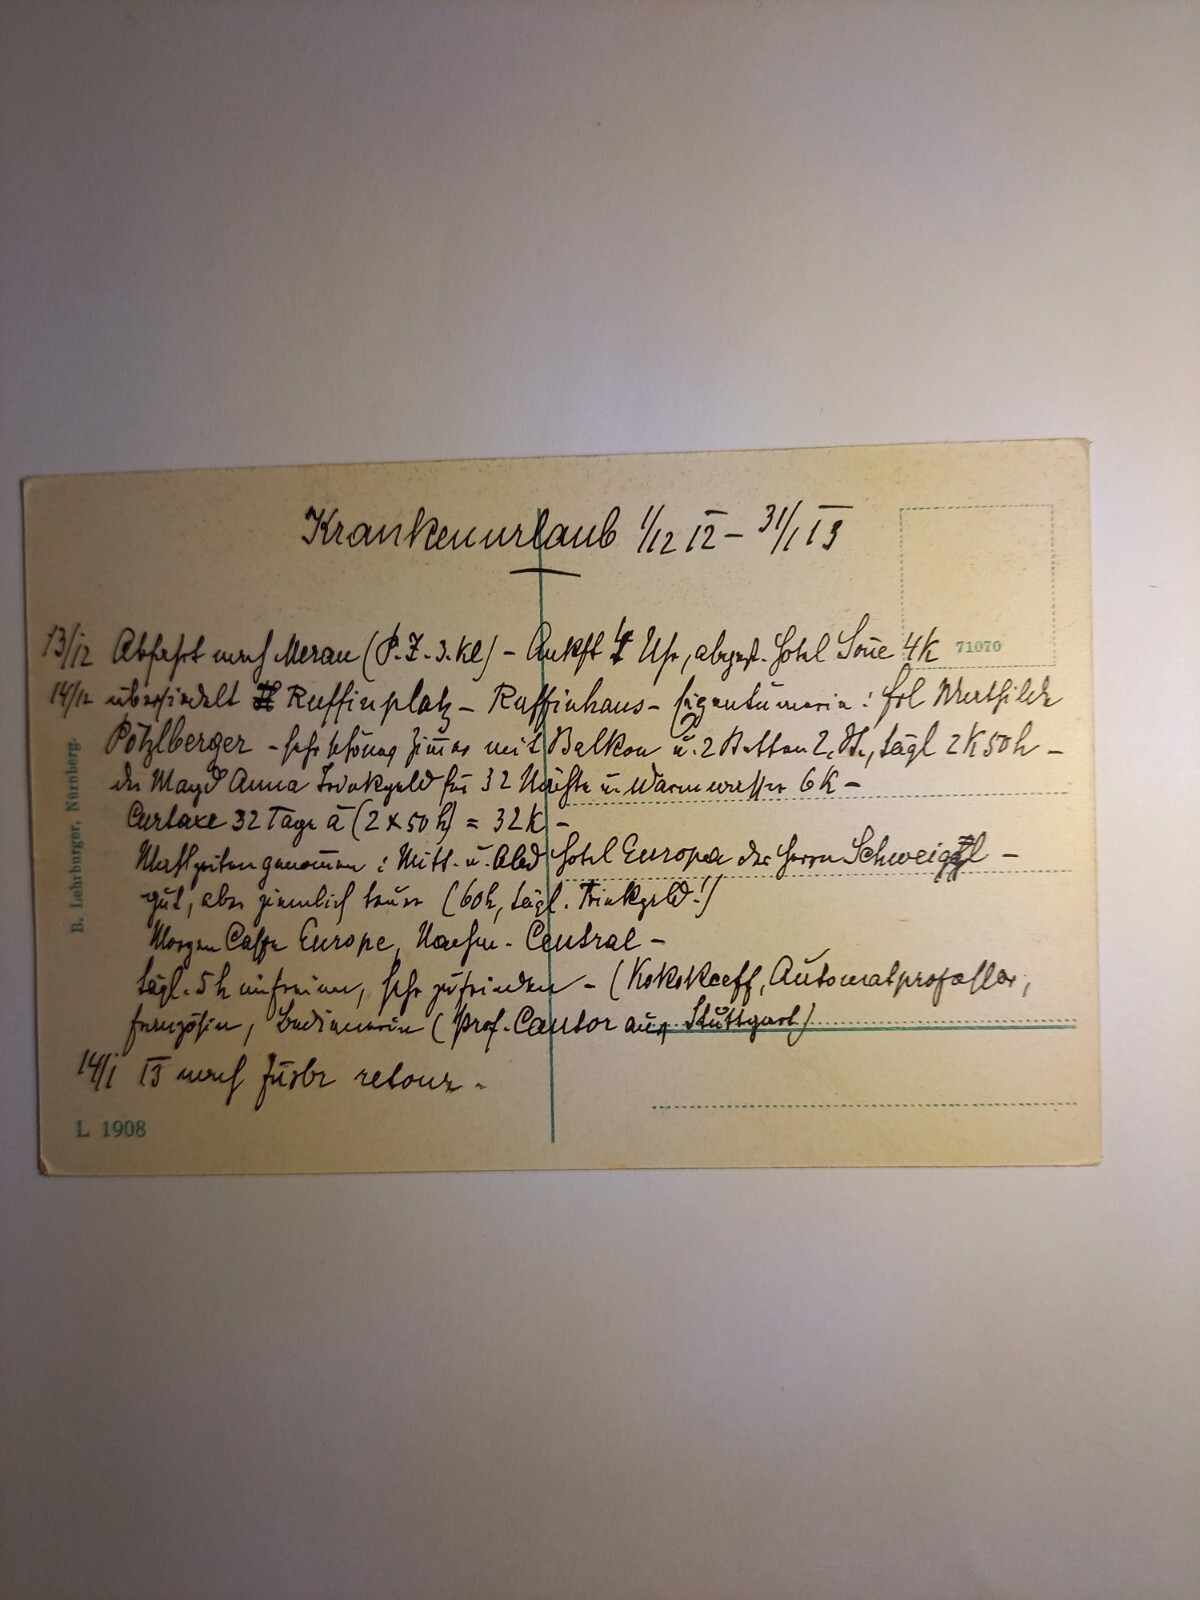 Krankenurlaub 1/12 12 – 31/1 13
13/12 Abfahrt nach Meran (P.Z. 3. Kl) – Ankft 4 Uhr, abgest. Hotel 4K
71070
14/12 übersiedelt Ruffinplatz – Ruffinhaus – Eigentümerin: Frl Mathilde
Pötzlberger – sehr schönes Zimmer mit Balkon u. 2 Betten 2. St., tägl 2K 50h –
der Magd Anna Trinkgeld für 32 Nächte u. Warmwasser 6K –
Curtaxe 32 Tage à (2 x 50 h) = 32 K –
Mahlzeiten genommen: Mitt. u. Abd Hotel Europa des Herrn Schweiggl –
gut, aber ziemlich teuer (60h, tägl. Trinkgeld!)
Morgen Caffe Europe, Nachm. Central –
tägl. 5 h, sehr zufrieden – (Kokokceff, Automatprofessor,
Französin, (Prof. Cantor aus Stuttgart)
14/1 13 nach retour.
L 1908
B. Lehrburger, Nürnberg.